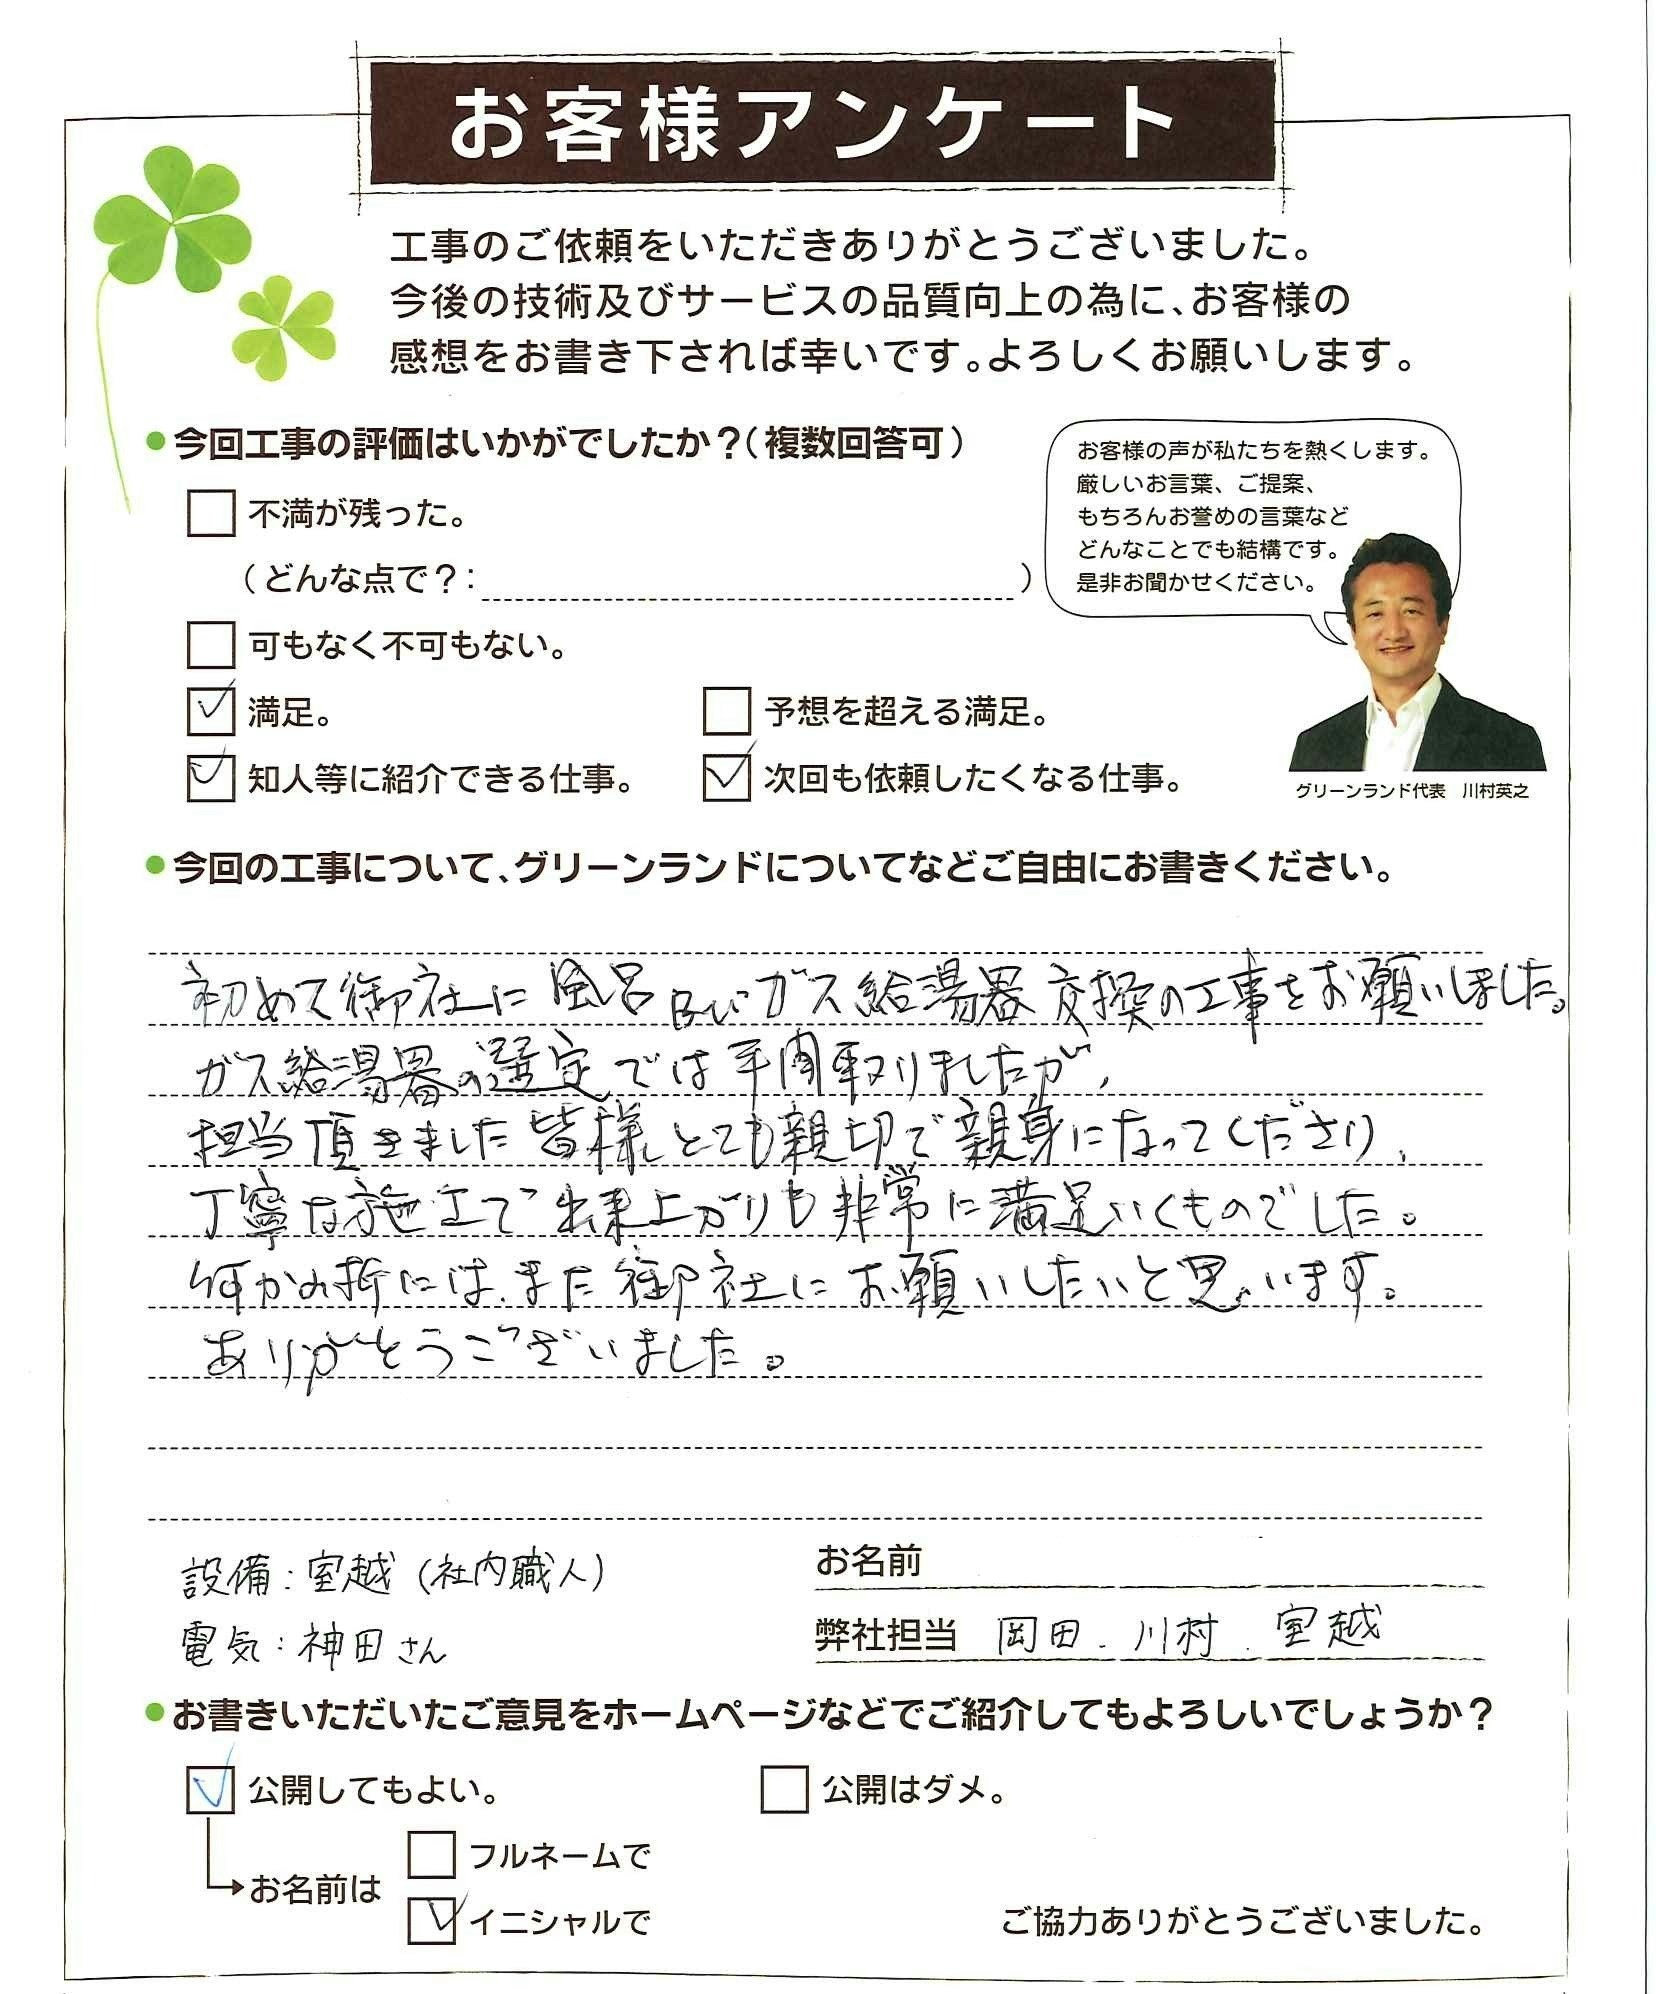 お客様アンケート
工事のご依頼をいただきありがとうございました。
今後の技術及びサービスの品質向上の為に、お客様の
感想をお書き下されば幸いです。よろしくお願いします。
●今回工事の評価はいかがでしたか？(複数回答可)
不満が残った。
(どんな点で？: )
可もなく不可もない。
満足。
予想を超える満足。
知人等に紹介できる仕事。
次回も依頼したくなる仕事。
お客様の声が私たちを熱くします。
厳しいお言葉、ご提案、
もちろんお誉めの言葉など
どんなことでも結構です。
是非お聞かせください。
グリーンランド代表　川村英之
●今回の工事について、グリーンランドについてなどご自由にお書きください。
初めて御社に風呂及びガス給湯器交換の工事をお願いしました。
ガス給湯器の選定では手間取りましたが、
担当頂きました皆様とても親切で親身になってくださり、
丁寧な施工で出来上がりも非常に満足いくものでした。
何かの折には、また御社にお願いしたいと思います。
ありがとうございました。
設備：室越(社内職人)
電気：神田さん
お名前
弊社担当　岡田．川村．室越
●お書きいただいたご意見をホームページなどでご紹介してもよろしいでしょうか？
公開してもよい。
公開はダメ。
お名前は
フルネームで
イニシャルで
ご協力ありがとうございました。